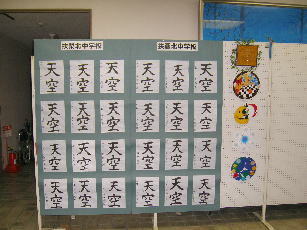 扶桑北中学校
扶桑北中学校
天空
天空
天空
天空
天空
天空
天空
天空
天空
天空
天空
天空
天空
天空
天空
天空
天空
天空
天空
天空
天空
天空
天空
天空